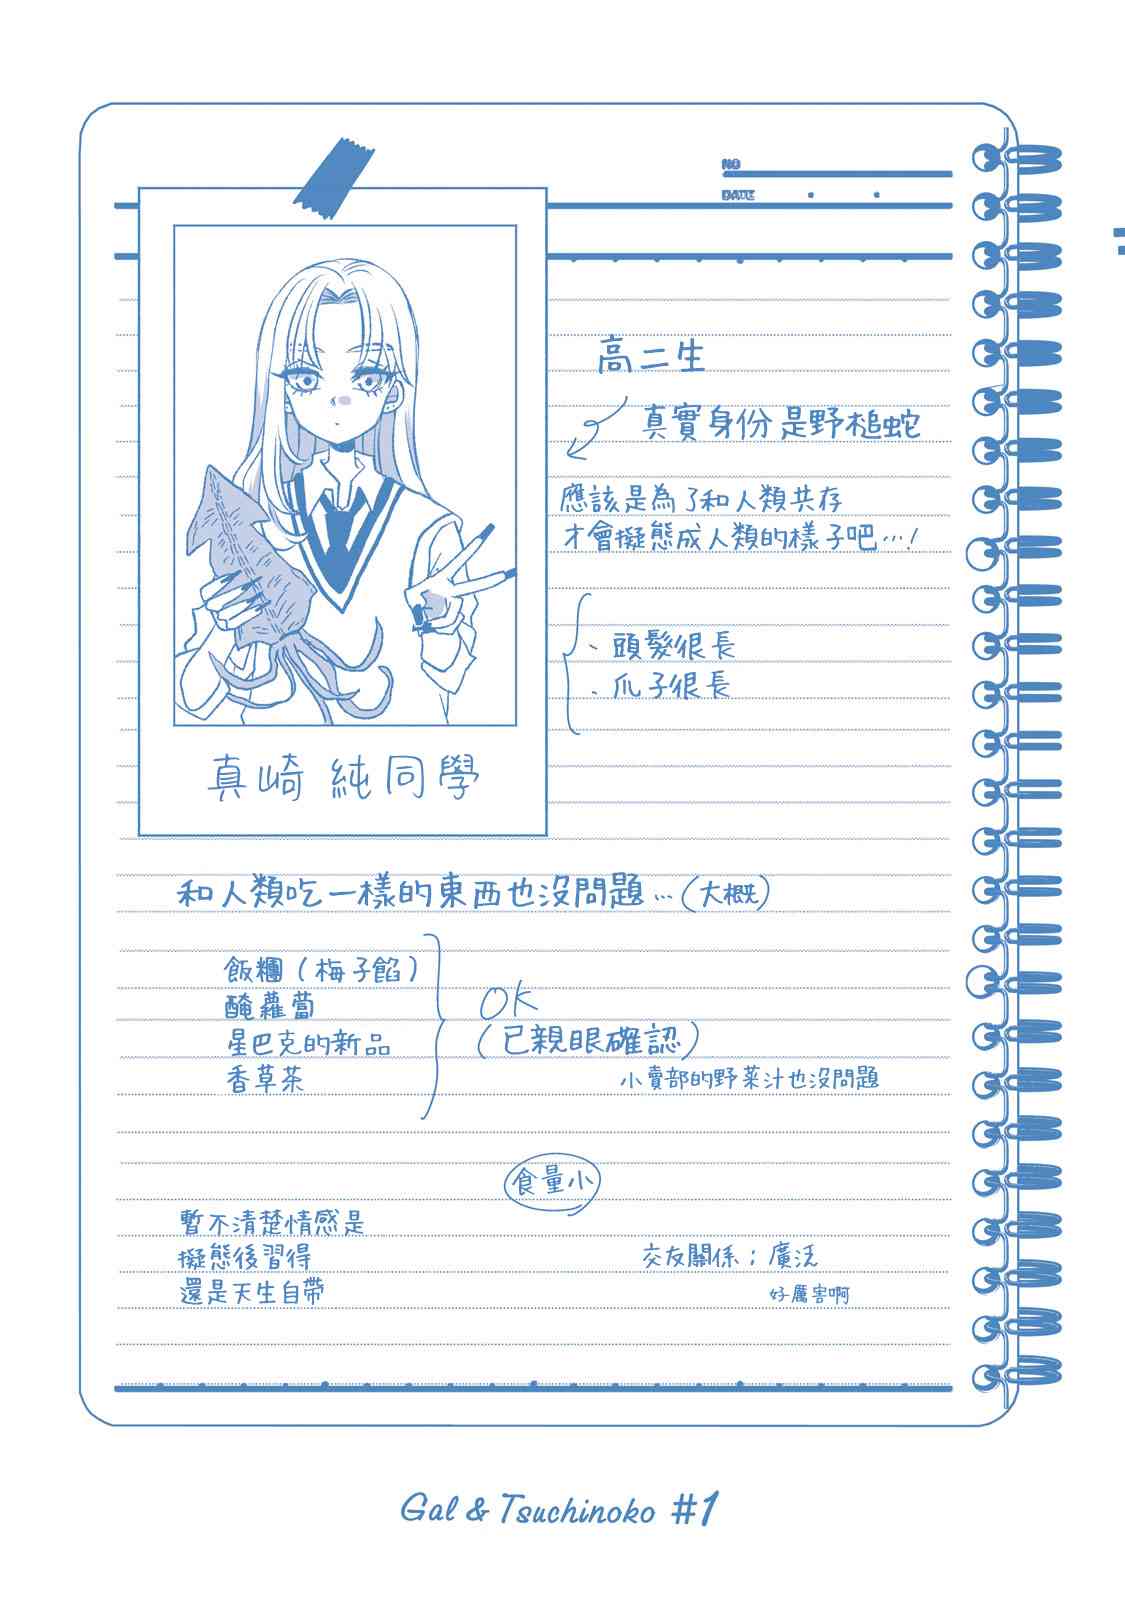 NO
DATE
高二生
真實身份是野槌蛇
應該是為了和人類共存
才會擬態成人類的樣子吧…！
、頭髮很長
、爪子很長
真崎 純同學
和人類吃一樣的東西也沒問題…（大概）
飯糰（梅子餡）
醃蘿蔔
星巴克的新品
香草茶
OK
（已親眼確認）
小賣部的野菜汁也沒問題
食量小
暫不清楚情感是
擬態後習得
還是天生自帶
交友關係；廣泛
好厲害啊
Gal & Tsuchinoko #1